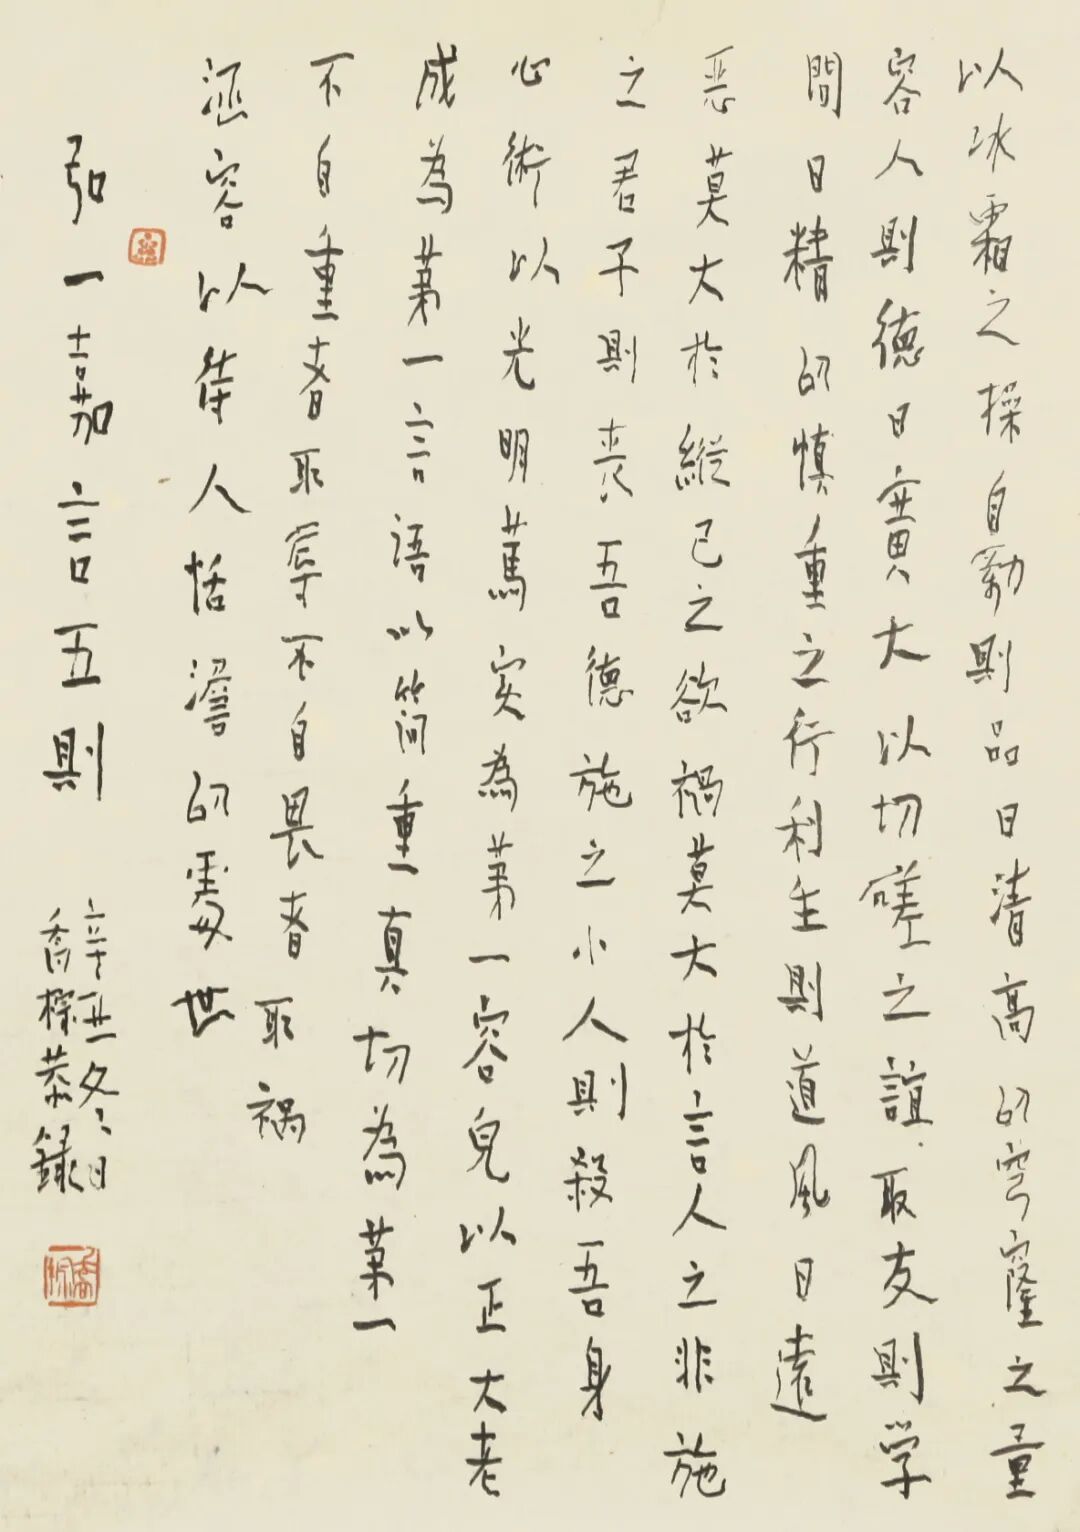 以冰霜之操自勵則品日清高以穹窿之量
容人則德日廣大以切磋之誼取友則学
問日精以慎重之行利生則道風日遠
惡莫大於縱己之欲禍莫大於言人之非施
之君子則丧吾德施之小人則殺吾身
心術以光明篤实為第一容皃以正大老
成為第一言語以简重真切為第一
不自重者取辱不自畏者取禍
涵容以待人恬澹以處世
弘一嘉言五則
辛丑冬日
喬標恭錄